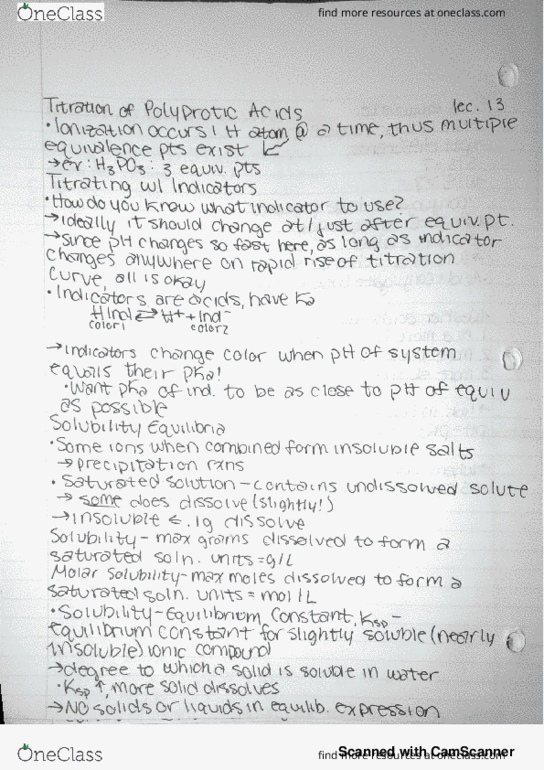 OneClass
find more resources at oneclass.com
Titration of Polyprotic Acids lec. 13
• Ionization occurs 1 H atom @ a time, thus multiple
equivalence pts exist
→ ex: H3PO3: 3 equiv. pts
Titrating w/ Indicators
• How do you know what indicator to use?
→ ideally it should change at/just after equiv. pt.
→ since pH changes so fast here, as long as indicator
changes anywhere on rapid rise of titration
curve, all is okay
• Indicators are acids, have Ka
HInd ⇌ H+ + Ind-
color 1 color 2
→ indicators change color when pH of system
equals their pKa!
• Want pKa of ind. to be as close to pH of equiv
as possible
Solubility Equilibria
• Some ions when combined form insoluble salts
→ precipitation rxns
• Saturated solution - contains undissolved solute
→ some does dissolve (slightly!)
→ insoluble < .1g dissolve
Solubility - max grams dissolved to form a
saturated soln. units = g/L
Molar Solubility - max moles dissolved to form a
saturated soln. units = mol/L
• Solubility-Equilibrium Constant, Ksp -
equilibrium constant for slightly soluble (nearly
insoluble) ionic compound
→ degree to which a solid is soluble in water
• Ksp ↑, more solid dissolves
→ NO solids or liquids in equilib. expression
OneClass
find more resources at oneclass.com
Scanned with CamScanner